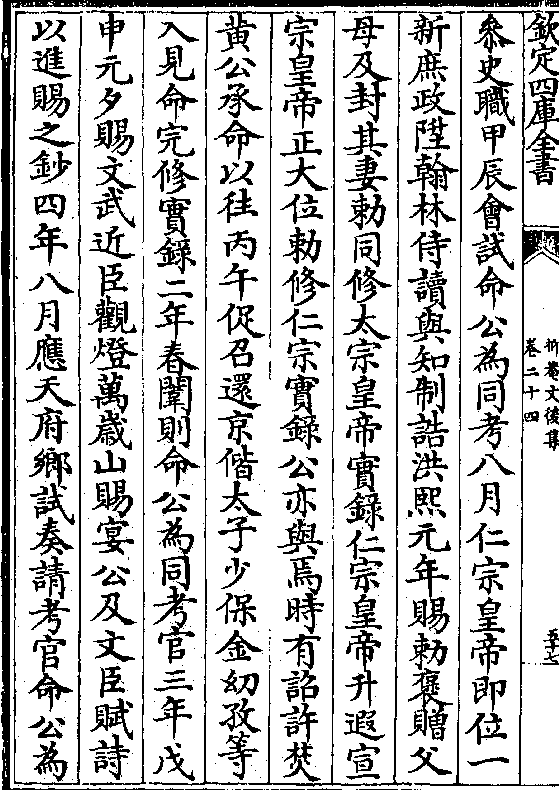 欽定四庫全書
抑菴文後集
卷二十四
叅史職甲辰會試命公為同考八月仁宗皇帝即位一
新庶政陞翰林侍讀與知制誥洪熙元年賜勅褒贈父
母及封其妻勅同修太宗皇帝實錄仁宗皇帝升遐宣
宗皇帝正大位勅修仁宗實錄公亦與焉時有詔許焚
黃公承命以徃丙午促召還京偕太子少保金幼孜等
入見命完修實錄二年春闈則命公為同考官三年戊
申元夕賜文武近臣觀燈萬歲山賜宴公及文臣賦詩
以進賜之鈔四年八月應天府鄉試奏請考官命公為